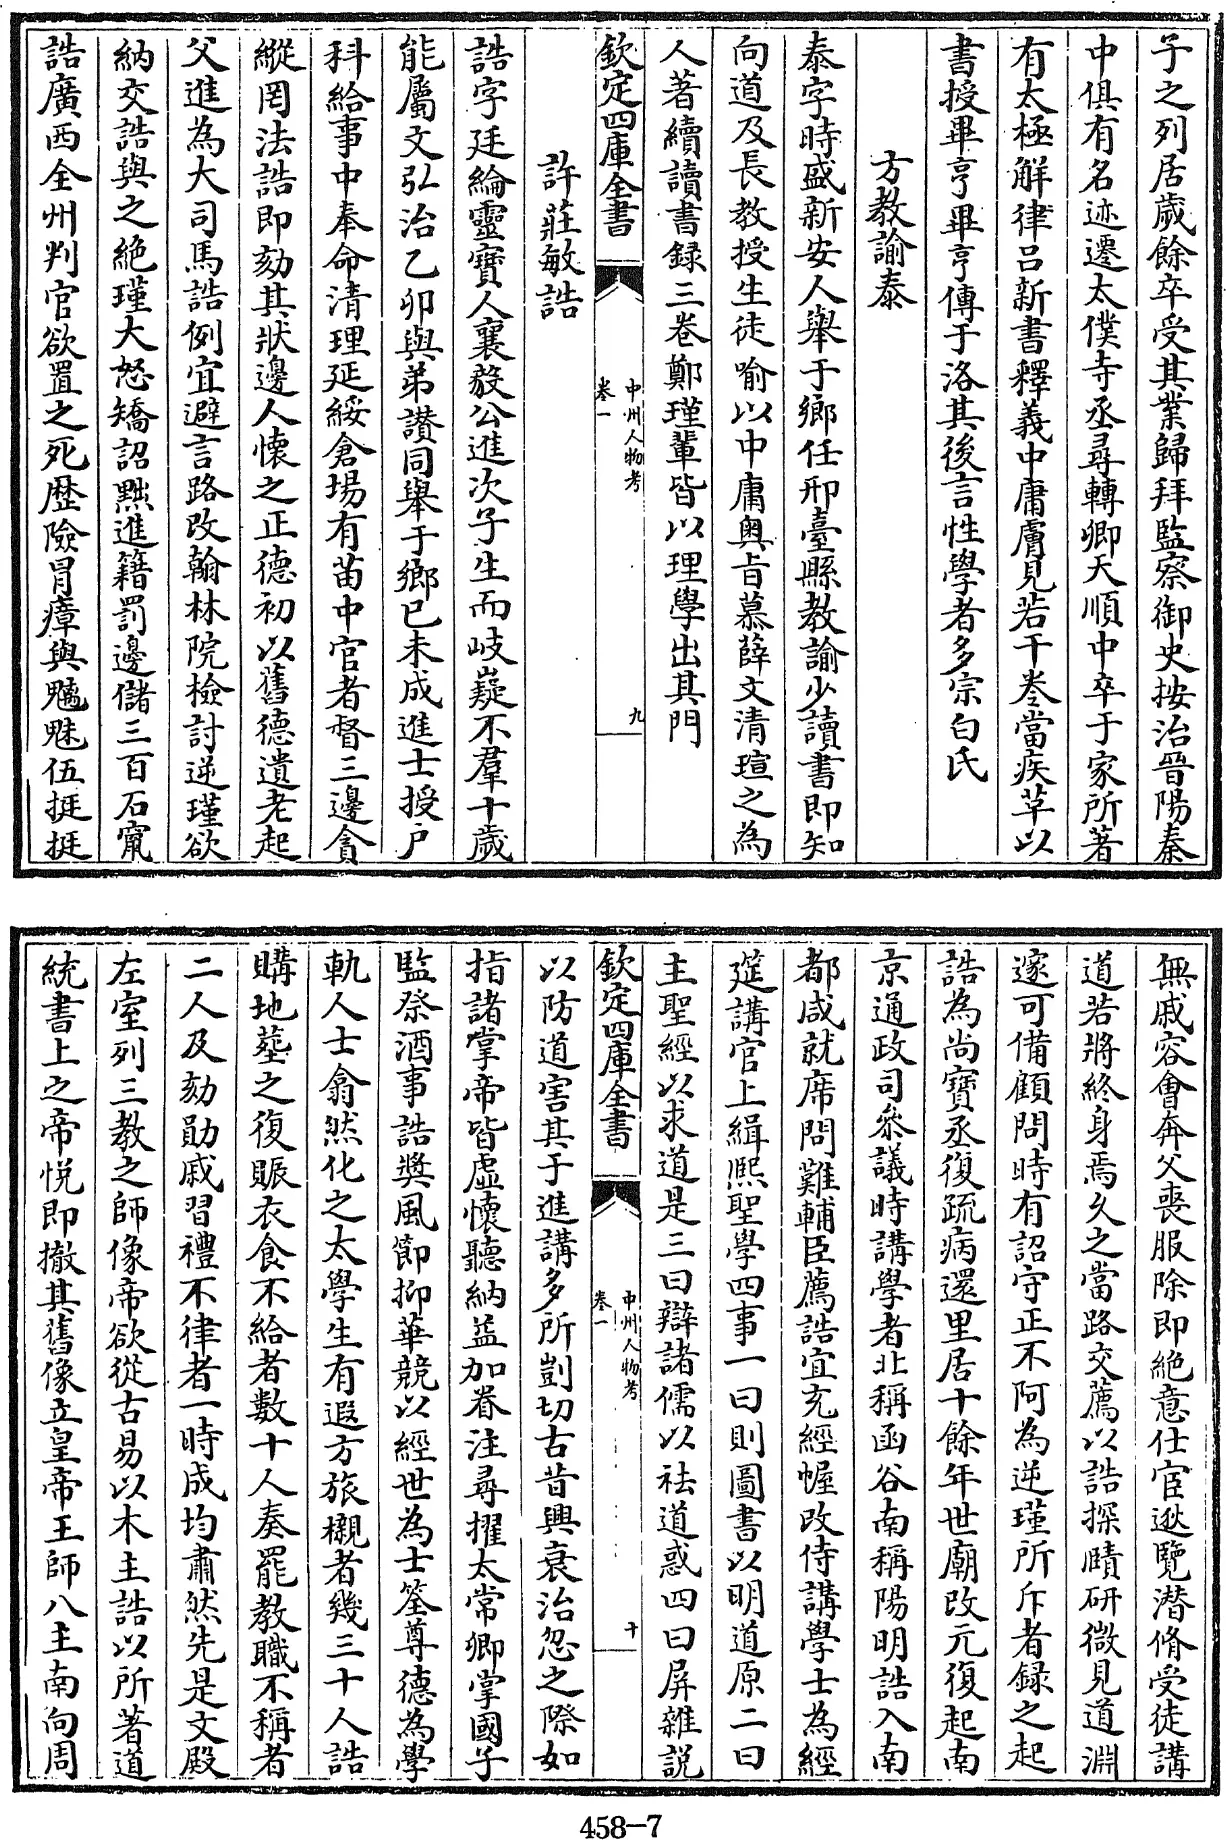 子之列居歲餘卒受其業歸拜監察御史按治晉陽秦
中俱有名迹遷太僕寺丞尋轉卿天順中卒于家所著
有太極解律呂新書釋義中庸膚見若干卷當疾草以
書授畢亨畢亨傳于洛其後言性學者多宗白氏
方教諭泰
泰字時盛新安人舉于鄉任邢臺縣教諭少讀書即知
向道及長教授生徒喻以中庸奥旨慕薛文清瑄之為
人著續讀書録三卷鄭瑾輩皆以理學出其門
欽定四庫全書
中州人物考
卷一
九
許莊敏誥
誥字廷綸靈寳人襄毅公進次子生而岐嶷不羣十歲
能屬文弘治乙卯與弟讚同舉于鄉己未成進士授户
科給事中奉命清理延綏倉場有苗中官者督三邊貪
縱罔法誥即劾其狀邊人懷之正德初以舊德遺老起
父進為大司馬誥例宜避言路改翰林院檢討逆瑾欲
納交誥與之絶瑾大怒矯詔黜進籍罰邊儲三百石竄
誥廣西全州判官欲置之死歴險冒瘴與魑魅伍挺挺
無戚容會奔父喪服除即絶意仕宦逖覽潛脩受徒講
道若將終身焉久之當路交薦以誥探賾研微見道淵
邃可備顧問時有詔守正不阿為逆瑾所斥者録之起
誥為尚寳丞復疏病還里居十餘年世廟改元復起南
京通政司叅議時講學者北稱函谷南稱陽明誥入南
都咸就席問難輔臣薦誥宜充經幄改侍講學士為經
筵講官上緝熙聖學四事一曰則圖書以明道原二曰
主聖經以求道是三曰辯諸儒以袪道惑四曰屏雜説
欽定四庫全書
中州人物考
卷一
十
以防道害其于進講多所剴切古昔興衰治忽之際如
指諸掌帝皆虛懷聽納益加眷注尋擢太常卿掌國子
監祭酒事誥奬風節抑華競以經世為士筌尊德為學
軌人士翕然化之太學生有遐方旅櫬者幾三十人誥
購地塟之復賑衣食不給者數十人奏罷教職不稱者
二人及劾勛戚習禮不律者一時成均肅然先是文殿
左室列三教之師像帝欲從古易以木主誥以所著道
統書上之帝悦即撤其舊像立皇帝王師八主南向周
458-7